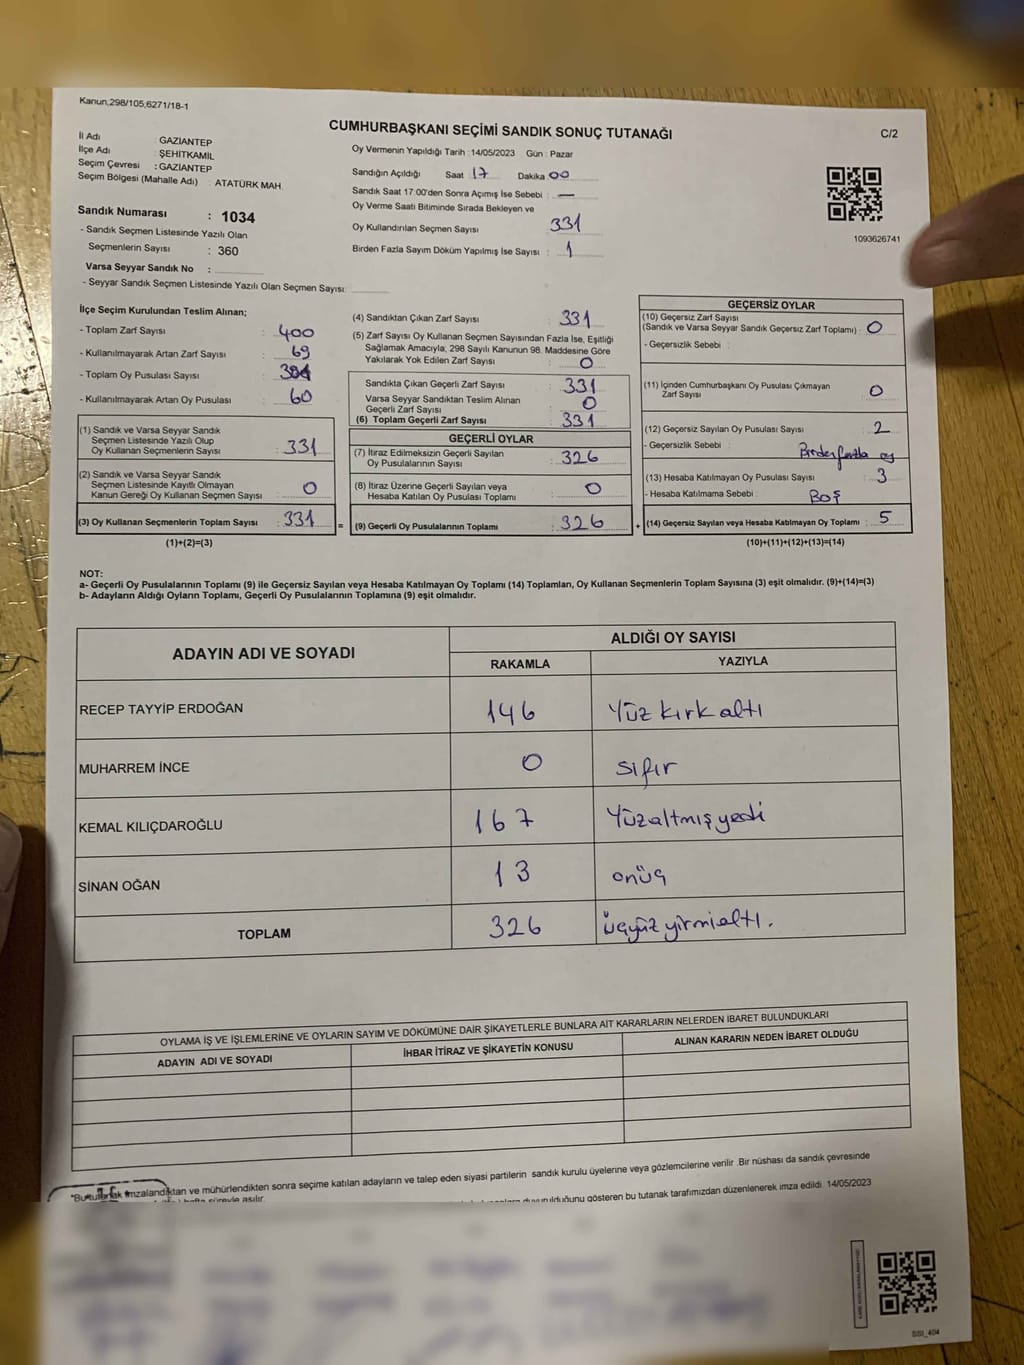 Kanun,298/105,6271/18-1
CUMHURBAŞKANI SEÇİMİ SANDIK SONUÇ TUTANAĞI
C/2
İl Adı : GAZİANTEP
İlçe Adı : ŞEHİTKAMİL
Seçim Çevresi : GAZİANTEP
Seçim Bölgesi (Mahalle Adı) : ATATÜRK MAH.
Oy Vermenin Yapıldığı Tarih : 14/05/2023 Gün : Pazar
Sandığın Açıldığı Saat 17 Dakika 00
Sandık Saat 17:00'den Sonra Açımış İse Sebebi : —
Oy Verme Saati Bitiminde Sırada Bekleyen ve
Oy Kullandırılan Seçmen Sayısı : 331
Birden Fazla Sayım Döküm Yapılmış İse Sayısı : 1
1093626741
Sandık Numarası : 1034
- Sandık Seçmen Listesinde Yazılı Olan
Seçmenlerin Sayısı : 360
Varsa Seyyar Sandık No :
- Seyyar Sandık Seçmen Listesinde Yazılı Olan Seçmen Sayısı:
İlçe Seçim Kurulundan Teslim Alınan;
- Toplam Zarf Sayısı : 400
- Kullanılmayarak Artan Zarf Sayısı : 69
- Toplam Oy Pusulası Sayısı :
- Kullanılmayarak Artan Oy Pusulası : 60
(1) Sandık ve Varsa Seyyar Sandık
Seçmen Listesinde Yazılı Olup
Oy Kullanan Seçmenlerin Sayısı : 331
(2) Sandık ve Varsa Seyyar Sandık
Seçmen Listesinde Kayıtlı Olmayan
Kanun Gereği Oy Kullanan Seçmen Sayısı : 0
(3) Oy Kullanan Seçmenlerin Toplam Sayısı : 331 =
(1)+(2)=(3)
(4) Sandıktan Çıkan Zarf Sayısı : 331
(5) Zarf Sayısı Oy Kullanan Seçmen Sayısından Fazla İse, Eşitliği
Sağlamak Amacıyla; 298 Sayılı Kanunun 98. Maddesine Göre
Yakılarak Yok Edilen Zarf Sayısı : 0
Sandıkta Çıkan Geçerli Zarf Sayısı : 331
Varsa Seyyar Sandıktan Teslim Alınan
Geçerli Zarf Sayısı : 0
(6) Toplam Geçerli Zarf Sayısı : 331
GEÇERLİ OYLAR
(7) İtiraz Edilmeksizin Geçerli Sayılan
Oy Pusulalarının Sayısı : 326
(8) İtiraz Üzerine Geçerli Sayılan veya
Hesaba Katılan Oy Pusulası Toplamı : 0
(9) Geçerli Oy Pusulalarının Toplamı : 326 +
GEÇERSİZ OYLAR
(10) Geçersiz Zarf Sayısı
(Sandık ve Varsa Seyyar Sandık Geçersiz Zarf Toplamı) : 0
- Geçersizlik Sebebi :
(11) İçinden Cumhurbaşkanı Oy Pusulası Çıkmayan
Zarf Sayısı : 0
(12) Geçersiz Sayılan Oy Pusulası Sayısı : 2
- Geçersizlik Sebebi : Birden fazla oy
(13) Hesaba Katılmayan Oy Pusulası Sayısı : 3
- Hesaba Katılmama Sebebi : Boş
(14) Geçersiz Sayılan veya Hesaba Katılmayan Oy Toplamı : 5
(10)+(11)+(12)+(13)=(14)
NOT:
a- Geçerli Oy Pusulalarının Toplamı (9) ile Geçersiz Sayılan veya Hesaba Katılmayan Oy Toplamı (14) Toplamları, Oy Kullanan Seçmenlerin Toplam Sayısına (3) eşit olmalıdır. (9)+(14)=(3)
b- Adayların Aldığı Oyların Toplamı, Geçerli Oy Pusulalarının Toplamına (9) eşit olmalıdır.
ADAYIN ADI VE SOYADI
ALDIĞI OY SAYISI
RAKAMLA YAZIYLA
RECEP TAYYİP ERDOĞAN 146 Yüz kırk altı
MUHARREM İNCE 0 sıfır
KEMAL KILIÇDAROĞLU 167 Yüzaltmışyedi
SİNAN OĞAN 13 onüç
TOPLAM 326 üçyüz yirmialtı.
OYLAMA İŞ VE İŞLEMLERİNE VE OYLARIN SAYIM VE DÖKÜMÜNE DAİR ŞİKAYETLERLE BUNLARA AİT KARARLARIN NELERDEN İBARET BULUNDUKLARI
ADAYIN ADI VE SOYADI İHBAR İTİRAZ VE ŞİKAYETİN KONUSU ALINAN KARARIN NEDEN İBARET OLDUĞU
"Bu tutanak imzalandıktan ve mühürlendikten sonra seçime katılan adayların ve talep eden siyasi partilerin sandık kurulu üyelerine veya gözlemcilerine verilir .Bir nüshası da sandık çevresinde
hafta süreyle asılır. duyurulduğunu gösteren bu tutanak tarafımızdan düzenlenerek imza edildi. 14/05/2023
SSI_404